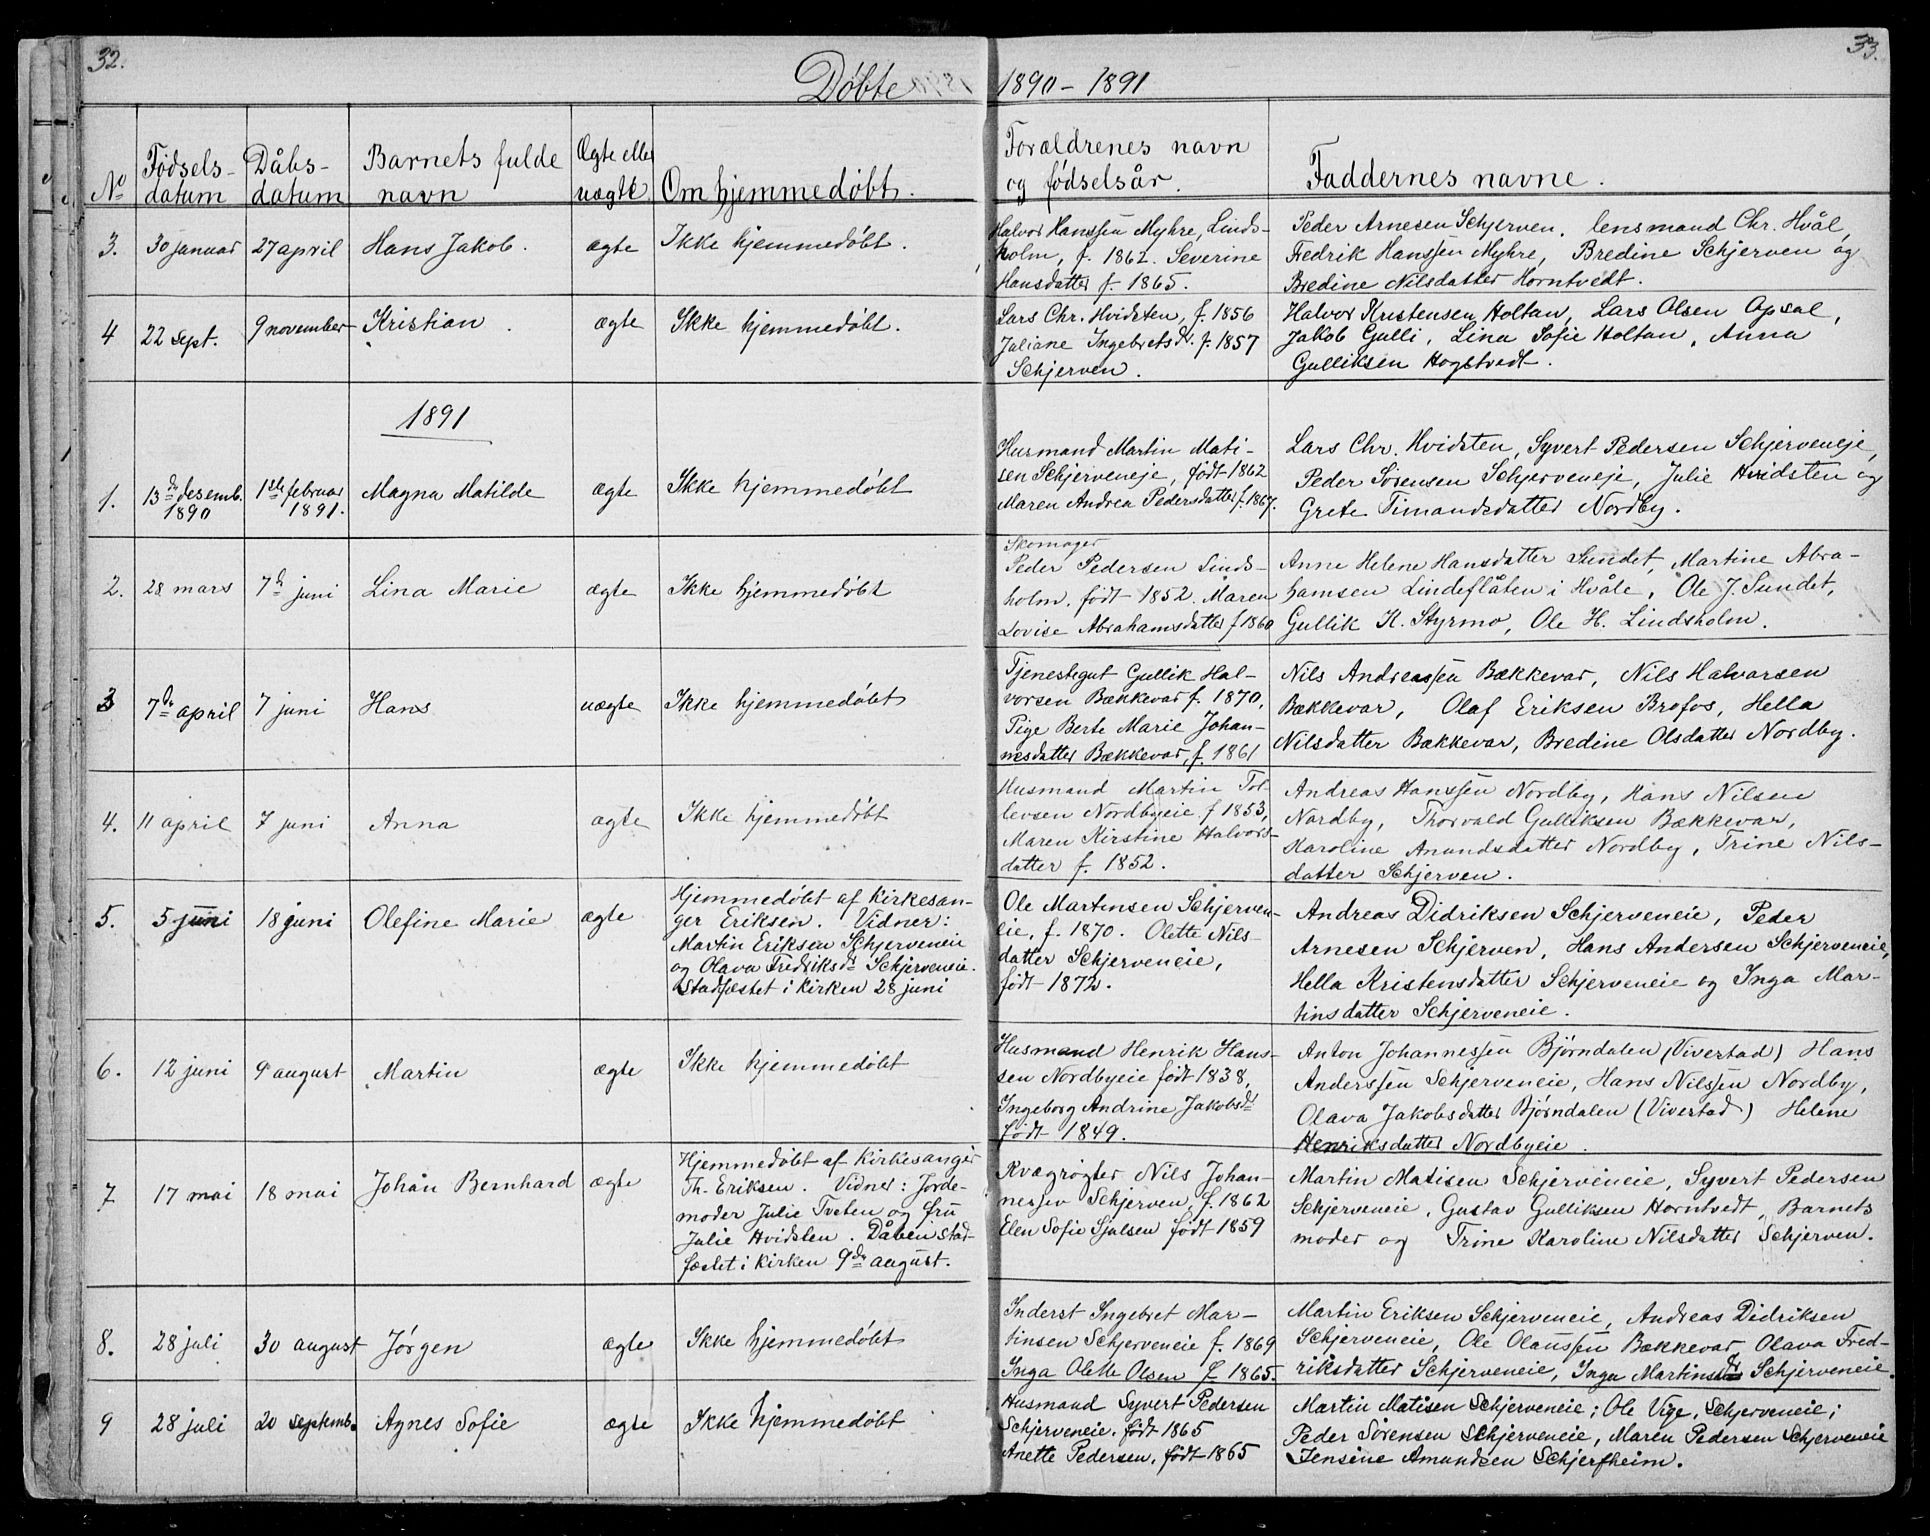 32.
33.
Døbte 1890 – 1891
No
Fødsels-
datum
Dåbs-
datum
Barnets fulde
navn
Ægte eller
uægte
Om hjemmedøbt.
Forældrenes navn
og fødselsår.
Faddernes navne.
3. 30 januar 27 april Hans Jakob. ægte Ikke hjemmedøbt.
Halvor Hanssen Myhre, Linds-
holm, f. 1862. Severine
Hansdatter f. 1865.
Peder Arnesen Schjerven, lensmand Chr. Hvål,
Fredrik Hanssen Myhre, Bredine Schjerven og
Bredine Nilsdatter Horntvedt.
4 22 sept. 9 november Kristian. ægte Ikke hjemmedøbt.
Lars Chr. Hvidsten, f. 1856
Juliane Ingebretsdr. f. 1857
Schjerven.
Halvor Kristensen Holtan, Lars Olsen Opsal,
Jakob Gulli, Lina Sofie Holtan, Anna
Gulliksen Hogstvedt.
1891
1. 13de desemb. 1890 1ste februar 1891. Magna Matilde ægte Ikke hjemmedøbt
Husmand Martin Mati-
sen Schjerveneje, født 1862
Maren Andrea Pedersdatter f. 1867.
Lars Chr. Hvidsten, Syvert Pedersen Schjerveneje,
Peder Sørensen Schjerveneje, Julie Hvidsten og
Grete Timandsdatter Nordby.
2. 28 mars 7de juni Lina Marie ægte Ikke hjemmedøbt
Skomager
Peder Pedersen Linds-
holm, født 1852. Maren
Lovise Abrahamsdatter f 1860
Anne Helene Hansdatter Sundet, Martine Abra-
hamsen Lindeflåten i Hvåle, Ole J. Sundet,
Gullik K. Styrmo, Ole H. Lindsholm.
3 7de april 7 juni Hans uægte Ikke hjemmedøbt
Tjenestegut Gullik Hal-
vorsen Bækkevar f. 1870,
Pige Berte Marie Johan-
nesdatter Bækkevar, f. 1861
Nils Andreassen Bækkevar, Nils Halvorsen
Bækkevar, Olaf Eriksen Brofos, Hella
Nilsdatter Bækkevar, Bredine Olsdatter Nordby.
4. 11 april 7 juni Anna ægte Ikke hjemmedøbt
Husmand Martin Tol-
levsen Nordbyeie f 1853,
Maren Kirstine Halvors-
datter f. 1852.
Andreas Hanssen Nordby, Hans Nilsen
Nordby, Thorvald Gulliksen Bækkevar,
Karoline Anundsdatter Nordby, Trine Nils-
datter Schjerven.
5. 5 juni 18 juni Olefine Marie ægte
Hjemmedøbt af Kirkesan-
ger Eriksen. Vidner:
Martin Eriksen Schjerveneie
og Olava Fredriksdr Schjerveneie.
Stadfæstet i kirken 28 juni
Ole Martensen Schjerven-
eie, f. 1870. Olette Nils-
datter Schjerveneie,
født 1872.
Andreas Didriksen Schjerveneie, Peder
Arnesen Schjerven, Hans Andersen Schjerveneie,
Hella Kristensdatter Schjerveneie og Inga Mar-
tinsdatter Schjerveneie.
6. 12 juni 9 august Martin ægte Ikke hjemmedøbt
Husmand Henrik Hans-
sen Nordbyeie født 1838,
Ingeborg Andrine Jakobsdr
født 1849.
Anton Johannessen Bjørndalen (Vivestad) Hans
Anderssen Schjerveneie, Hans Nilssen Nordby,
Olava Jakobsdatter Bjørndalen (Vivestad) Helene
Henriksdatter Nordbyeie.
7 17 mai 18 mai Johan Bernhard ægte
Hjemmedøbt af Kirkesanger
Th. Eriksen. Vidner: Jorde-
moder Julie Tveten og fru
Julie Hvidsten. Dåben stad-
fæstet i kirken 9de august.
Kvægrøgter Nils Johan-
nessen Schjerven, f. 1862
Elen Sofie Sjulsen født 1859
Martin Matisen Schjerveneie, Syvert Pedersen
Schjerveneie, Gustav Gulliksen Horntvedt, Barnets
moder og Trine Karoline Nilsdatter Schjerven.
8. 28 juli 30 august Jørgen ægte Ikke hjemmedøbt
Inderst Ingebret Mar-
tinsen Schjerveneie f. 1869
Inga Olette Olsen f 1865.
Martin Eriksen Schjerveneie, Andreas Didriksen
Schjerveneie, Ole Olaussen Bækkevar, Olava Fred-
riksdatter Schjerveneie, Inga Martinsdr Schjerveneie.
9 28 juli 20 septemb. Agnes Sofie ægte Ikke hjemmedøbt
Husmand Syvert Pedersen
Schjerveneie, født 1865
Anette Pedersen, født 1865
Martin Matisen Schjerveneie; Ole Vige, Schjerveneie;
Peder Sørensen Schjerveneie, Maren Pedersen Schjerveneie
Jensine Amundsen Schjerfheim.